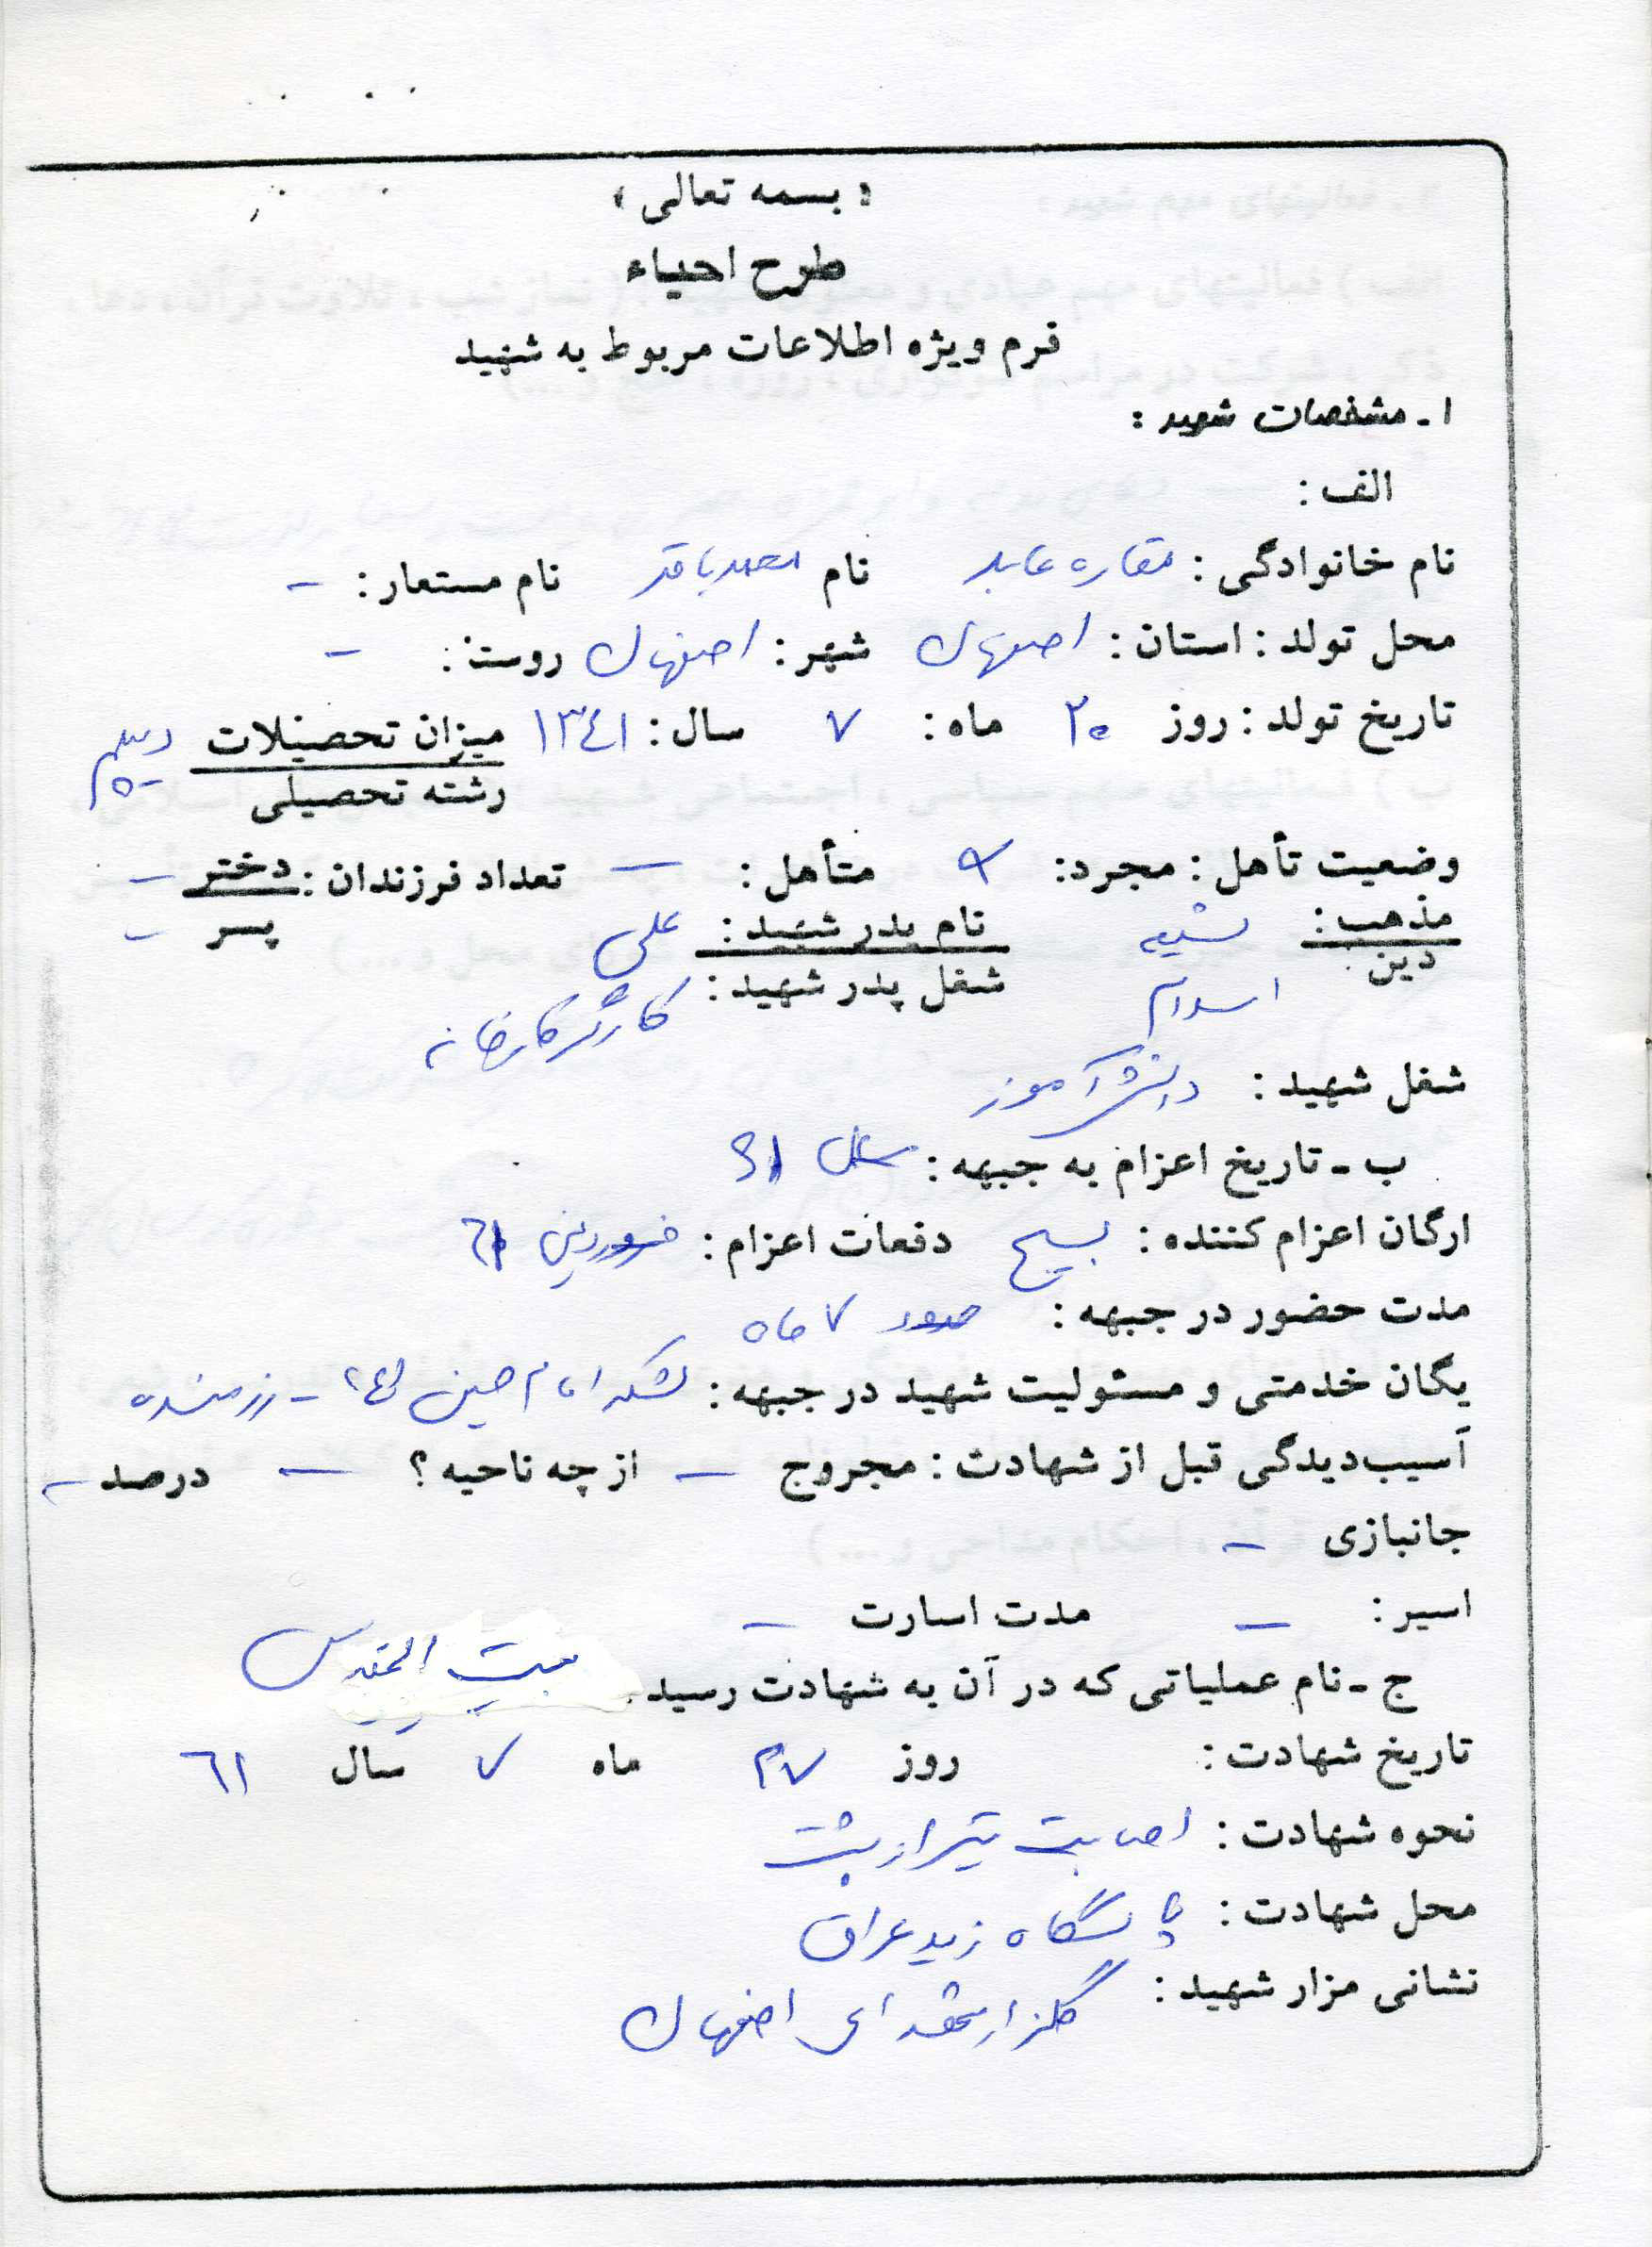 « بسمه تعالی »
طرح احیاء
فرم ویژه اطلاعات مربوط به شهید
۱ ـ مشخصات شهید :
الف :
نام خانوادگی : نقاره عابد نام محمدباقر نام مستعار : -
محل تولد : استان : اصفهان شهر : اصفهان روستا : -
تاریخ تولد : روز ۲۰ ماه : ۷ سال : ۱۳٤۱ میزان تحصیلات دیپلم
رشته تحصیلی
وضعیت تأهل : مجرد : متأهل : - تعداد فرزندان : دختر -
پسر -
مذهب : شیعه نام پدر شهید : علی
دین اسلام شغل پدر شهید : کارگر کارخانه
شغل شهید : دانش آموز
ب ـ تاریخ اعزام به جبهه : سال ۶۱
ارگان اعزام کننده : بسیج دفعات اعزام : فروردین ۶۱
مدت حضور در جبهه : حدود ۷ ماه
یگان خدمتی و مسئولیت شهید در جبهه : لشکر امام حسین (ع) - رزمنده
آسیب‌دیدگی قبل از شهادت : مجروح - از چه ناحیه ؟ - درصد -
جانبازی -
اسیر : - مدت اسارت -
ج ـ نام عملیاتی که در آن به شهادت رسید : بیت المقدس
تاریخ شهادت : روز ۲۷ ماه ۷ سال ٦۱
نحوه شهادت : اصابت تیر از پشت
محل شهادت : پاسگاه زید عراق
نشانی مزار شهید : گلزار شهدای اصفهان